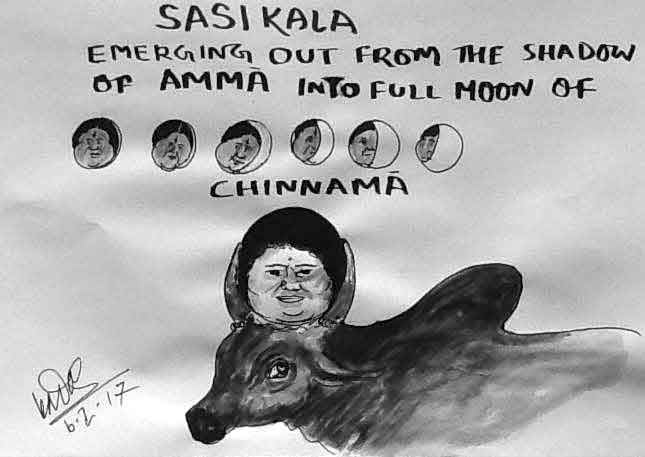 SASIKALA
EMERGING OUT FROM THE SHADOW
OF AMMĀ INTO FULL MOON OF
CHINNAMĀ
6.2.17